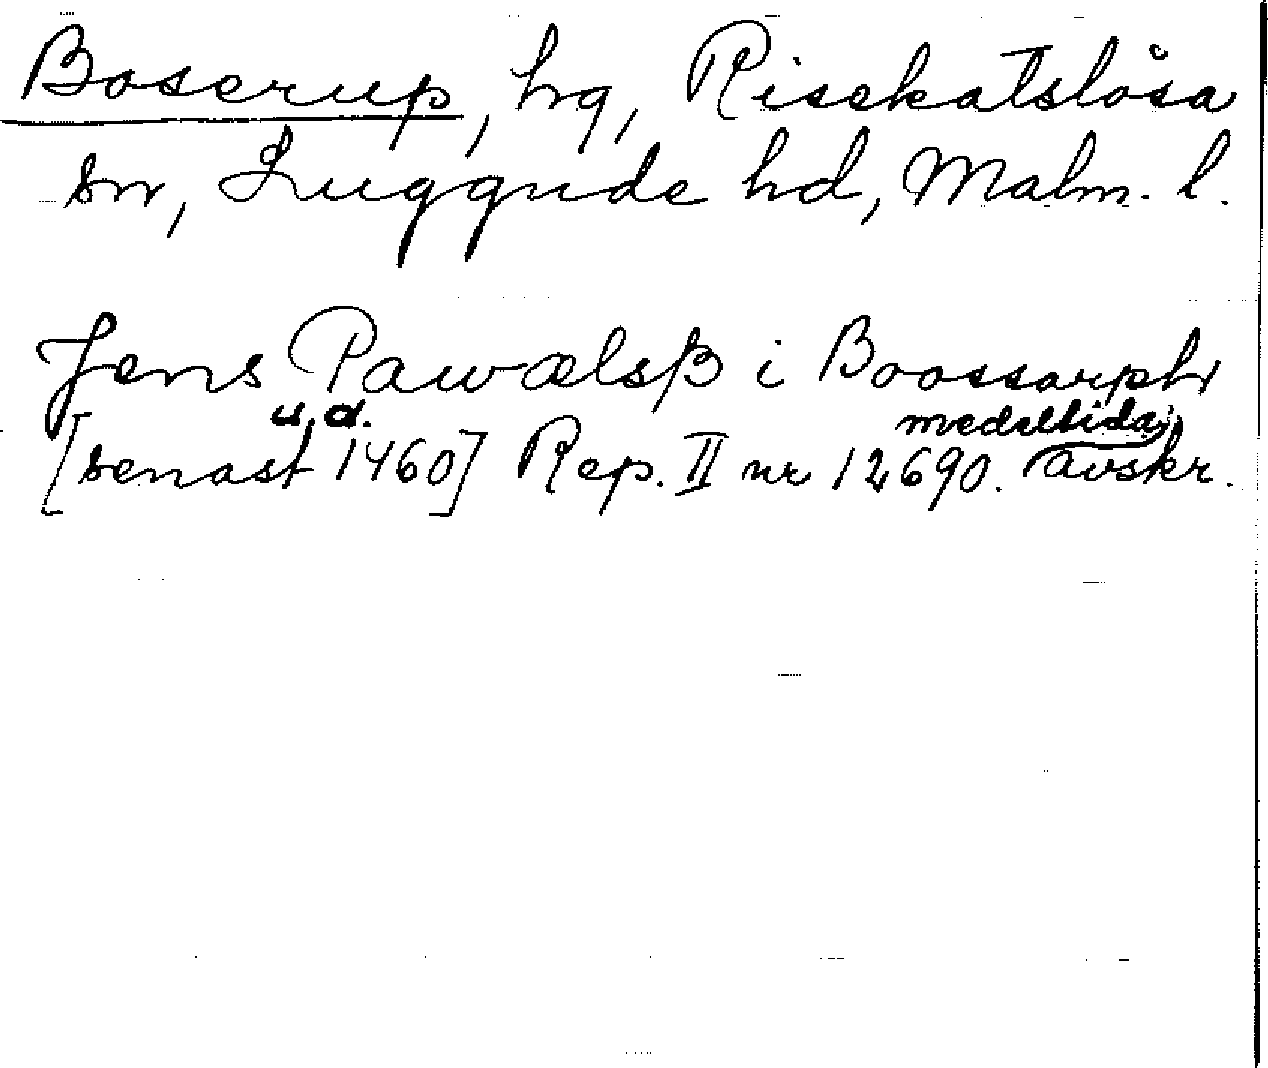 Boserup, hg, Risekatslösa
sn, Luggude hd, Malm. l.
Jens Pawælsß i Boossarpht
u.d. medeltida
[senast 1460] Rep. II nr 12690. avskr.